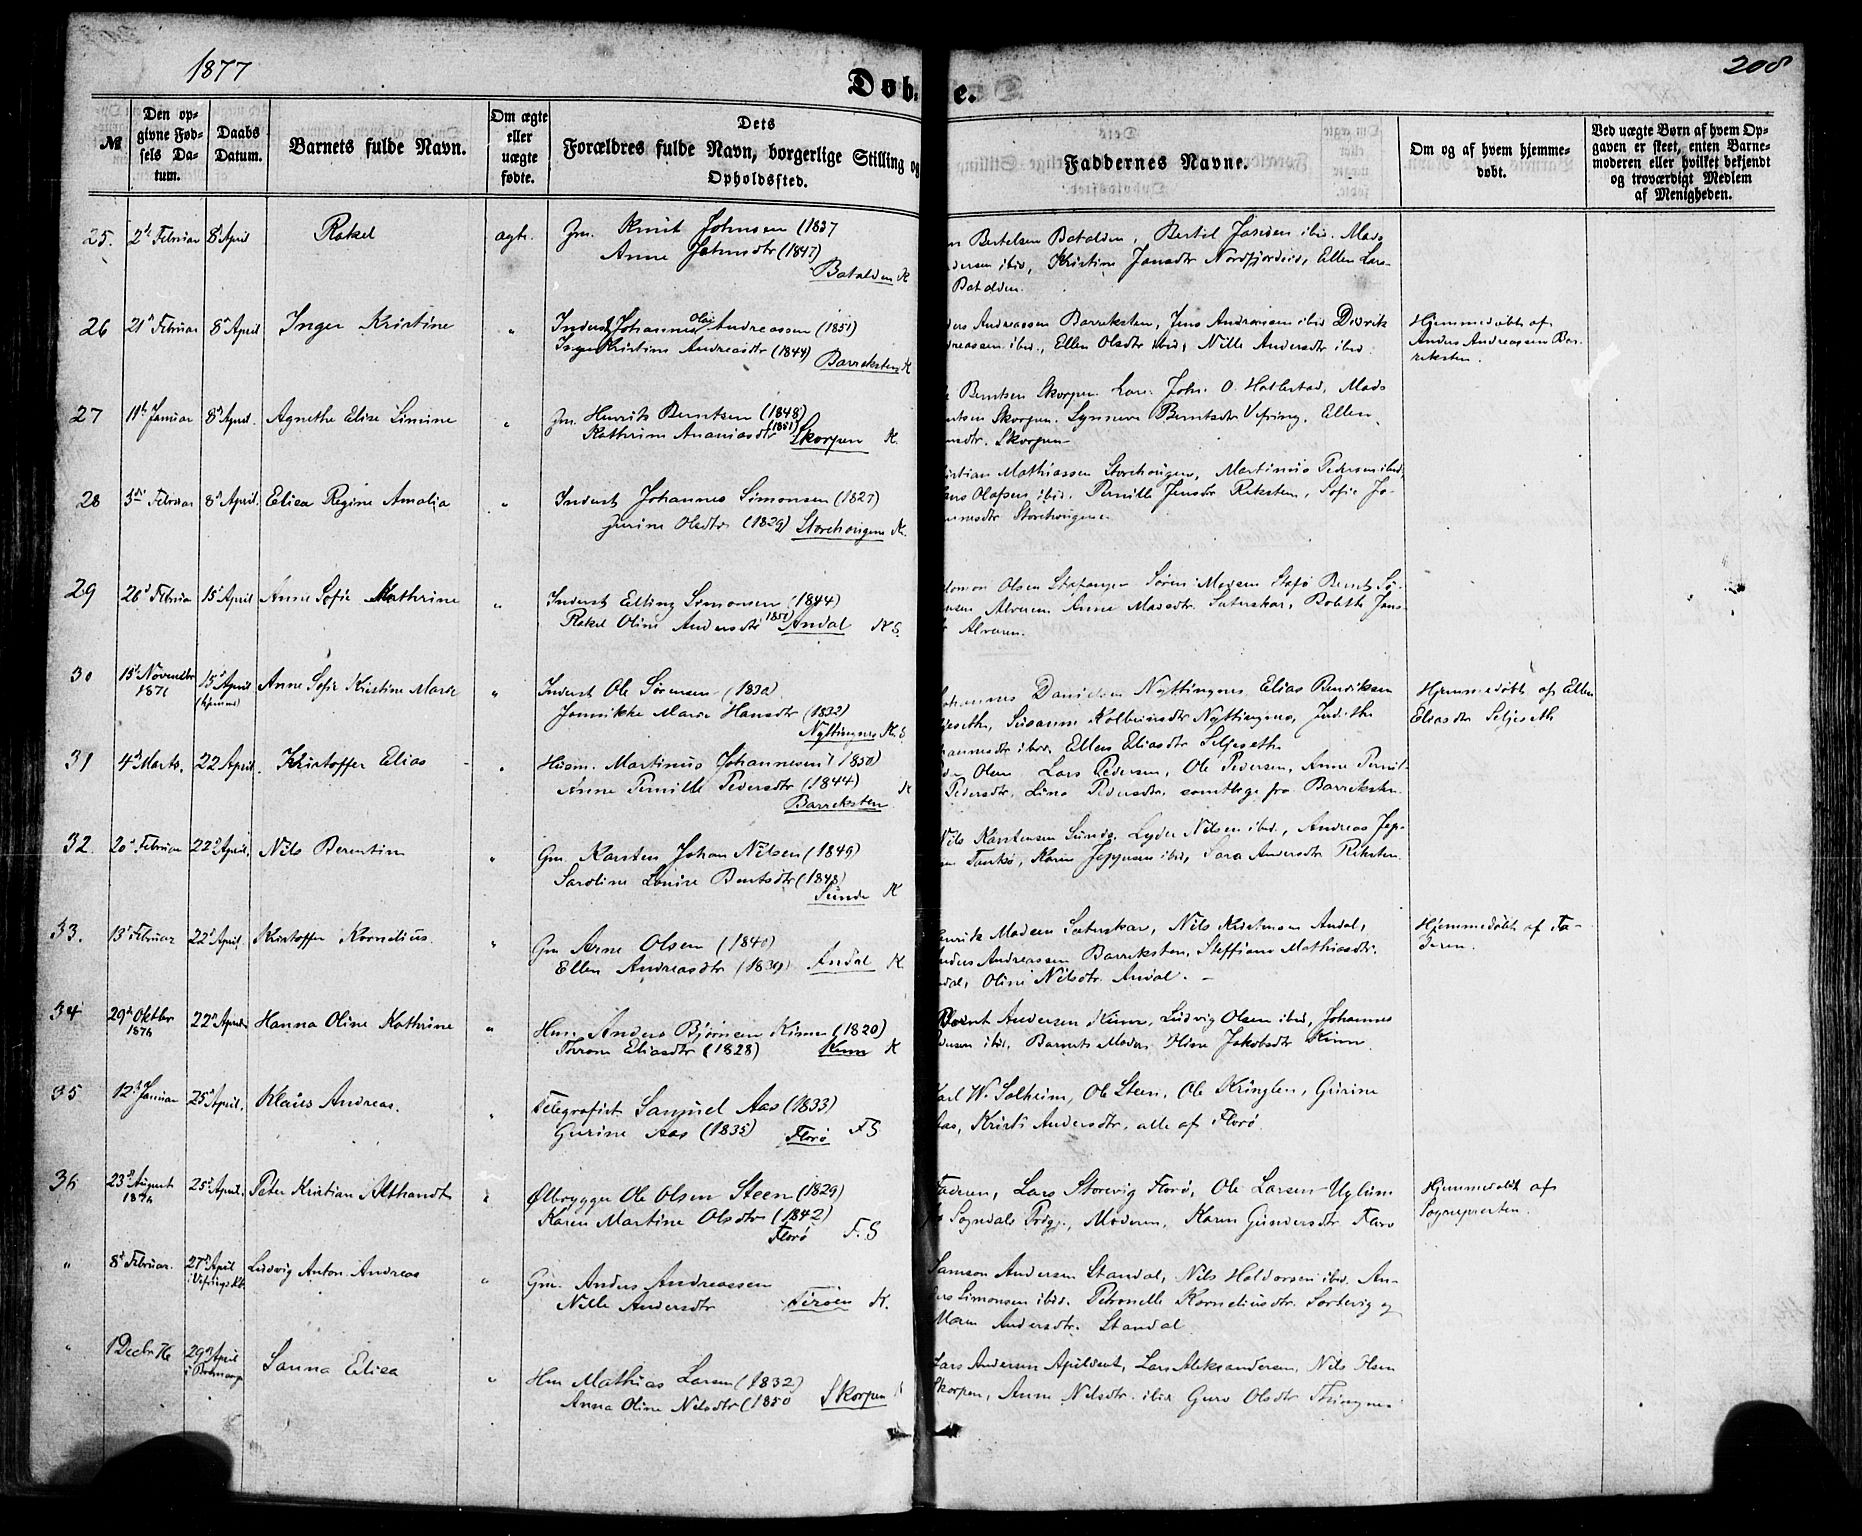 1877
Døbte.
208
№
Den opgivne Fødsels Datum.
Daabs Datum.
Barnets fulde Navn.
Om ægte eller uægte fødte.
Dets Forældres fulde Navn, borgerlige Stilling og Opholdssted.
Faddernes Navne.
Om og af hvem hjemmedøbt.
Ved uægte Børn af hvem Opgaven er skeet, enten Barnemoderen eller hvilket bekjendt og troværdigt Medlem af Menigheden.
25. 2de Februar 8d April Rakel ægte. Gm. Knut Johnsen (1837
Anne Johnsdtr (1847)
Batalden K
Bertelsen Batalden, Bertil Jansen ibid. Mads
ibid, Kristine Jansdtr Nordfjordeid, Ellen Lars-
Batalden.
26 21d Februar 8d April Inger Kristine " Inderst Johannes Olai Andreassen (1851)
Inger Kristine Andreasdtr (1844) Barreksten K
Andreassen Barreksten, Jens Andreasen ibid Didrik
dreassen ibid., Ellen Olsdtr ibid, Nille Andersdtr ibid.
Hjemmedøbt af
Anders Andreassen Bar-
reksten.
27 11te Januar 8d April. Agnethe Elise Simine " Gm. Henrik Berntsen (1848)
Kathrine Ananiasdtr (1851) Skorpen K.
Berntsen Skorpen. Lars Joh. O. Hatlestad, Mads
ntsen Skorpen. Synneve Berntsdtr Vefring, Ellen
sdtr. Skorpen
28 3die Februar 8d April. Elisa Regine Amalia " Inderst Johannes Simonsen (1827)
Jurine Olsdtr (1829) Storehougen K.
istian Mathiassen Storehougen, Martinus Pedersen ibid,
Olafsen ibid. Pernille Jensdtr Reksten, Sofie Jo-
nesdtr Storehougen
29 26d Februar 15d April Anne Sofie Mathrine " Inderst Elling Simonsen (1844)
Rakel Oline Andersdtr 1851) Andal K S.
lomon Olsen Stafanger Søren Madsen Stafø Bernt Sø-
nsen Alvøren. Anne Madsdtr. Saterskar, Bolette Jans-
Alvøren.
30 15d Novembr 1876 15d April Anne Sofie Kristine Marie " Inderst Ole Sørensen (1830)
Jannikke Marie Hansdtr (1832)
Nyttingnes K. S
ohannes Danielsen Nyttingnes, Elias Bendiksen
ljeseth, Susanne Kolbeinsdtr Nyttingnes, Judithe
hannesdtr ibid. Ellen Eliasdtr Seljeseth
Hjemmedøbt af Ellen
Eliasdtr Seljeseth
31 4d Marts. 22 April. Kristoffer Elias " Husm. Martinus Johannesen (1850)
Anne Pernille Pedersdtr (1844)
Barreksten K
Olsen Lars Pedersen, Ole Pedersen, Anne Pernil-
Pedersdtr, Lina Pedersdtr. samtlige fra Barreksten.
32. 20d Februar 22d April. Nils Berentin " Gm. Karsten Johan Nilsen (1849)
Saroline Louise Berntsdtr (1848)
Sunde K
Nils Karstensen Sunde, Lyder Nilsen ibid., Andreas Jep-
Tansø, Karen Jeppesen ibid, Sara Andersdtr Reksten.
33. 13d Februar 22d April. Kristoffer Kornelius. " Gm Arne Olsen (1840)
Ellen Andreasdtr (1839) Andal K.
enrik Madsen Saterskar, Nils Kristensen Andal,
nders Andreassen Barreksten, Steffiane Mathiasdtr.
dal, Oline Nilsdtr. Andal.
Hjemmedøbt af Fa-
deren.
34 29d Oktbr 1876 22d April Hanna Oline Kathrine " Hm. Anders Bjørnsen Kinn (1820)
Eliasdtr (1828) Kinn K
Bernt Andersen Kinn, Ludvig Olsen ibid, Johannes
dersen ibid. Barnets Moder, Oline Jakobsdtr Kinn.
35 12d Januar 25d April. Klaus Andreas. " Telegrafist Samuel Aas (1833)
Gurine Aas (1835) Florø F S
Karl W. Solheim, Ole Steen, Ole Kringlen, Gurine
Aas, Kristi Andersdtr, alle af Florø.
36 23d August 1876 25d April. Peter Kristian Althandt " Ølbrygger Ole Olsen Steen (1829)
Karen Martine Olsdtr (1842)
Florø F. S
Faderen, Lars Storevig Florø, Ole Larsen Uglum
Sogndals Prgj., Moderen, Karen Gundersdtr Florø
Hjemmedøbt af
Sognepresten.
" 8d Februar. 27d April i Vefrings Kb. Ludvig Anton Andreas " Gm. Anders Andreassen
Nille Andersdtr Terøen K.
Samson Andersen Standal, Nils Haldorsen ibid. An-
ders Simonsen ibid. Petronelle Korneliusdtr. Sortevig og
Maren Andersdtr. Standal
" 1 Decbr 76 29d April Sanna Elisa " Hm Mathias Larsen (1832)
Anna Oline Nilsdtr (1850 Skorpen K
Lars Andersen Apildset, Lars Aleksandersen, Nils Olsen
Skorpen, Anne Nilsdtr. ibid Guro Olsdtr Tingnes